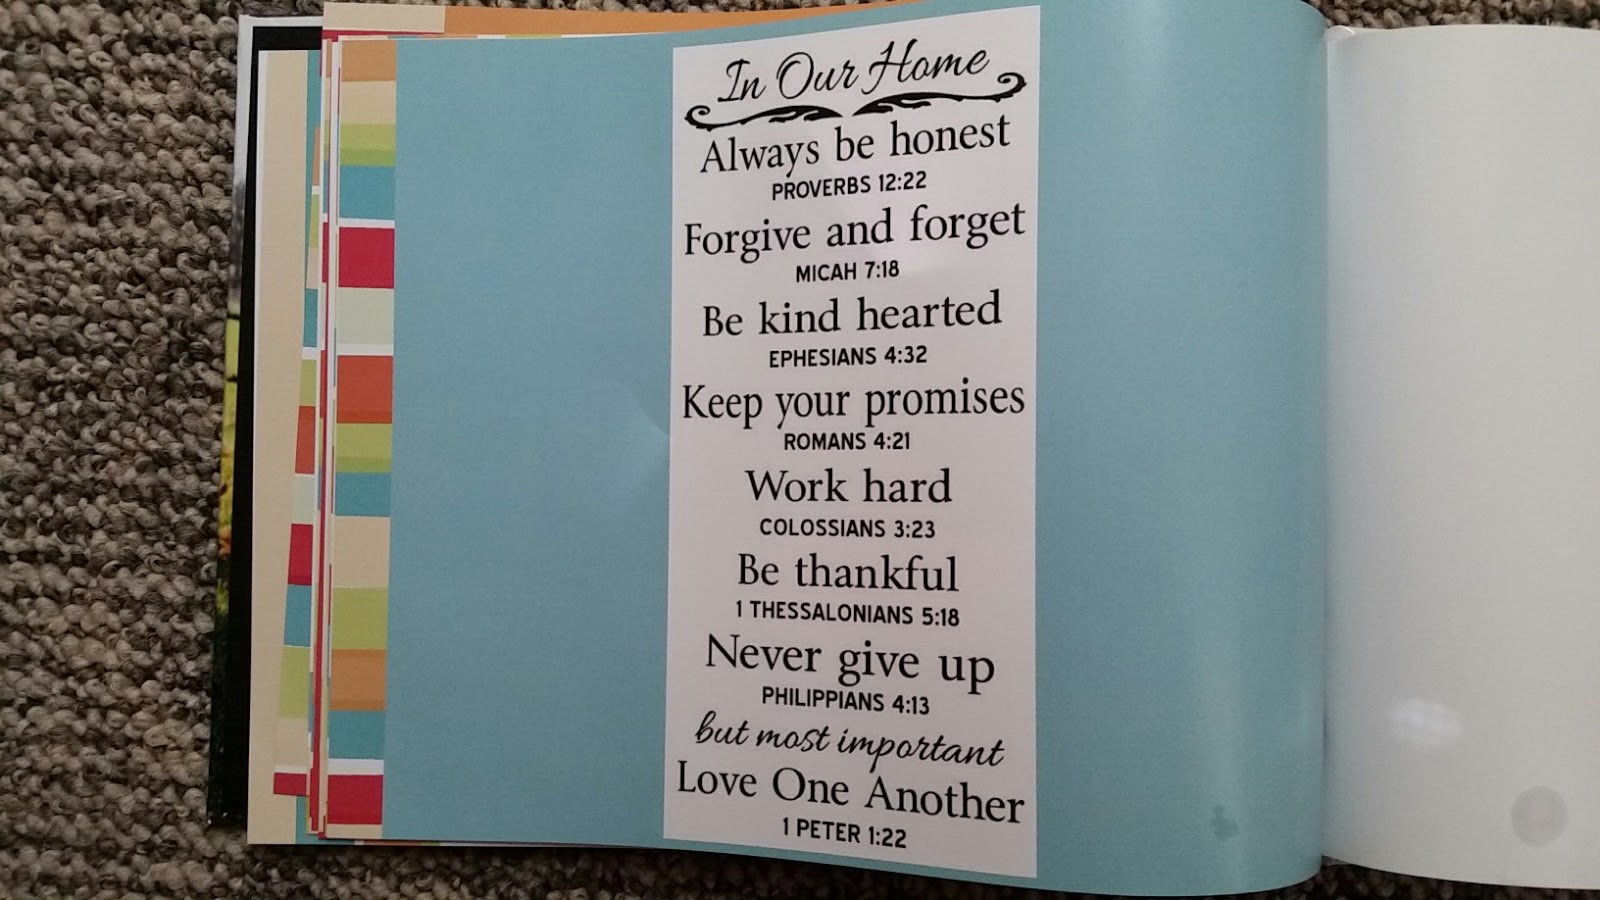 In Our Home
Always be honest
PROVERBS 12:22
Forgive and forget
MICAH 7:18
Be kind hearted
EPHESIANS 4:32
Keep your promises
ROMANS 4:21
Work hard
COLOSSIANS 3:23
Be thankful
1 THESSALONIANS 5:18
Never give up
PHILIPPIANS 4:13
but most important
Love One Another
1 PETER 1:22